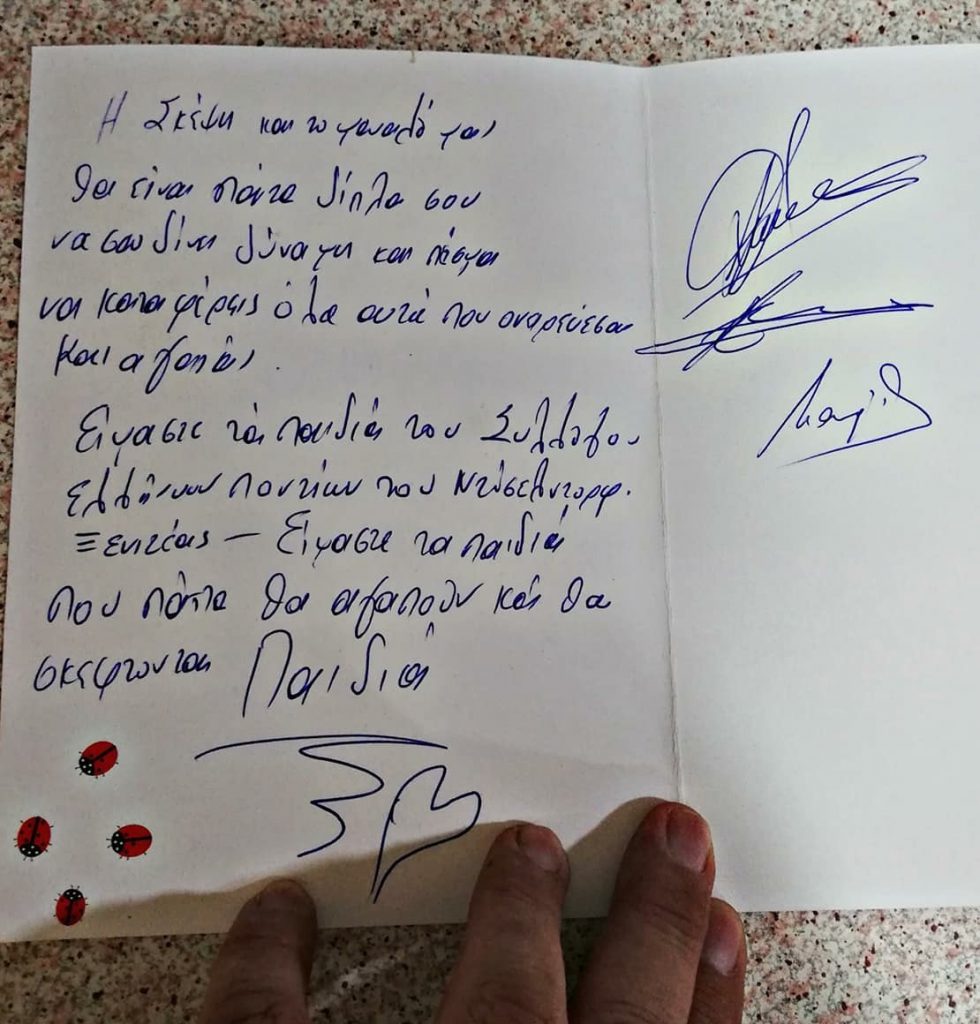 Η Σκέψη και το μυαλό μας
θα είναι πάντα δίπλα σου
να σου δίνει δύναμη και πείσμα
να καταφέρεις όλα αυτά που ονειρεύεσαι
και αγαπάς.
Είμαστε τα παιδιά του Συλλόγου
Ελλήνων Ποντίων του Ντύσελντορφ.
Ξενιτέας – Είμαστε τα παιδιά
που πάντα θα αγαπούν και θα
σκέφτονται Παιδιά